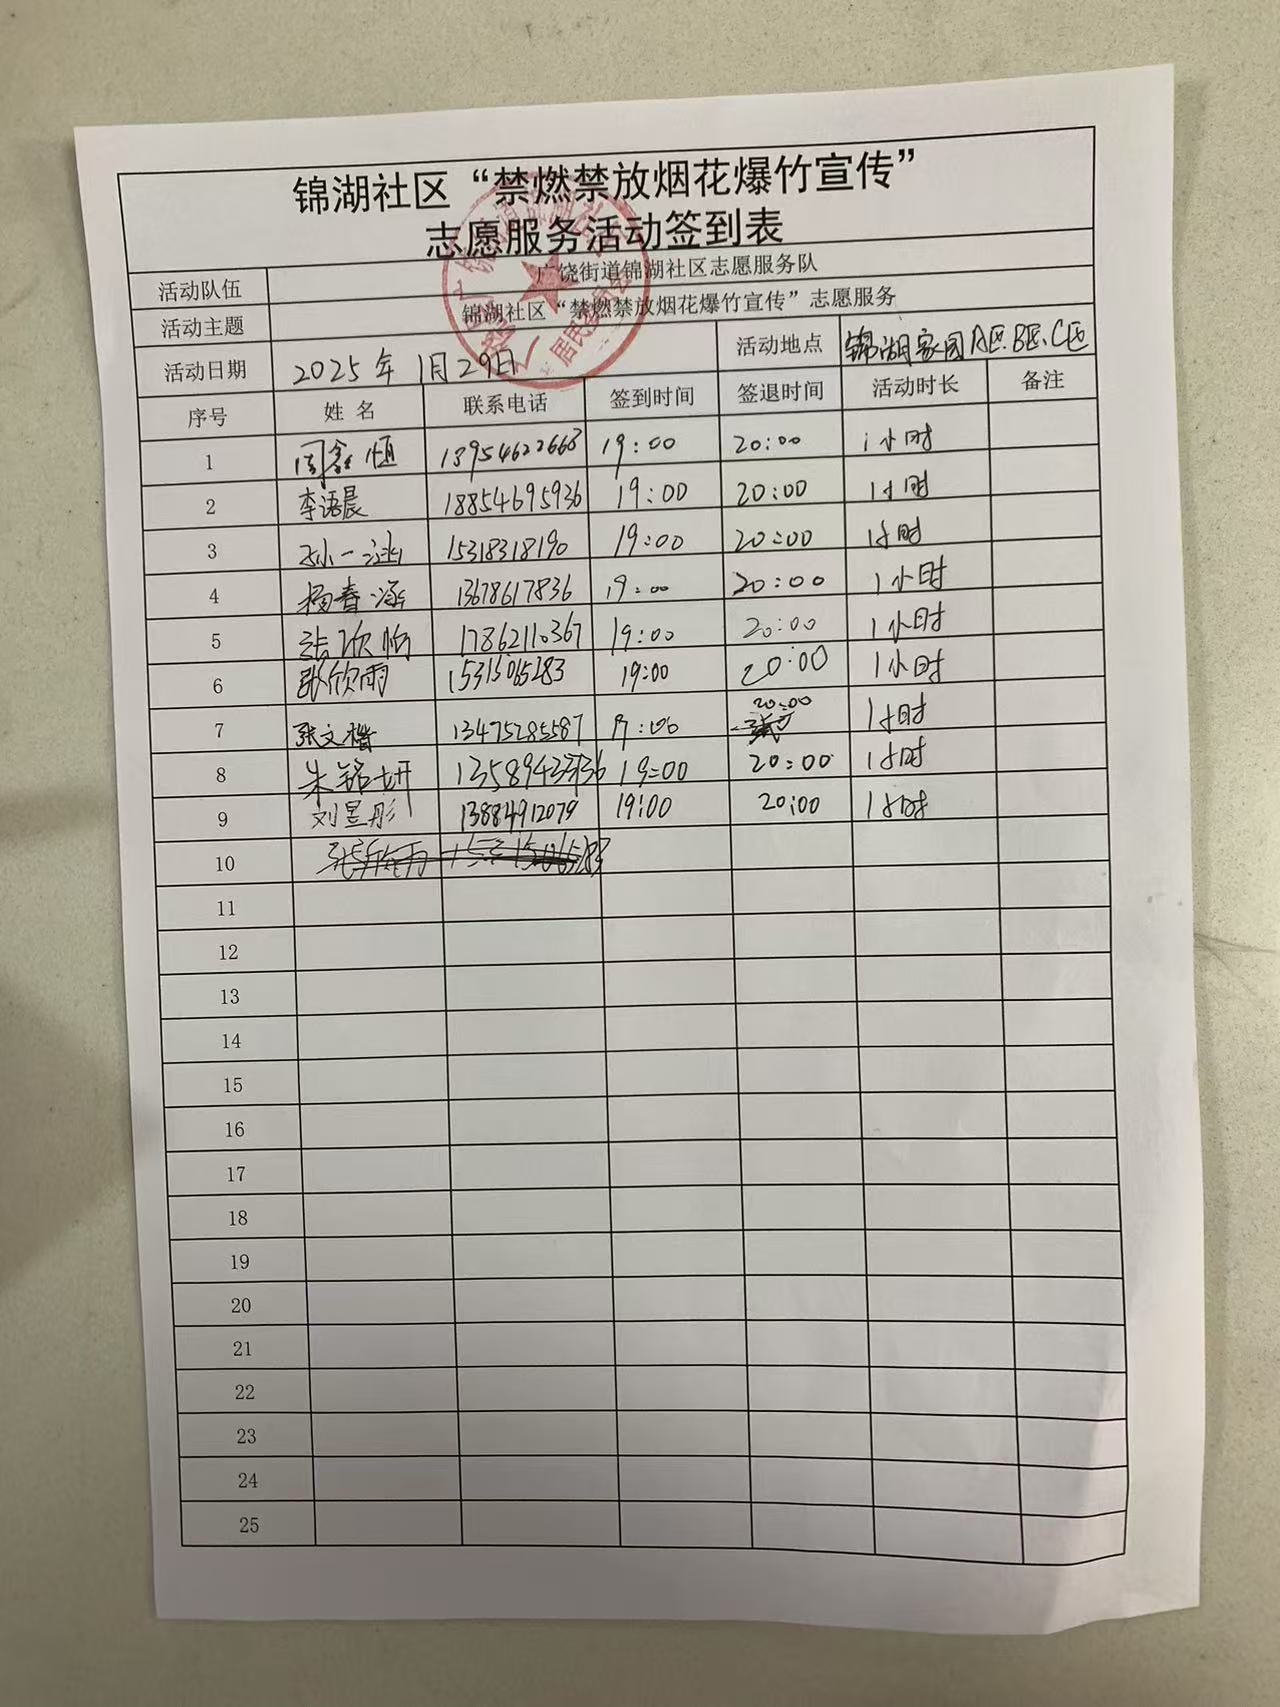 锦湖社区“禁燃禁放烟花爆竹宣传”
志愿服务活动签到表
活动队伍 广饶街道锦湖社区志愿服务队
活动主题 锦湖社区“禁燃禁放烟花爆竹宣传”志愿服务
活动日期 2025年1月29日 活动地点 锦湖家园A区.B区.C区
序号 姓名 联系电话 签到时间 签退时间 活动时长 备注
1 周鑫恒 13954622668 19:00 20:00 1小时
2 李语晨 18854695936 19:00 20:00 1小时
3 孙一涵 15318318190 19:00 20:00 1小时
4 杨春涵 13678617836 19:00 20:00 1小时
5 张欣怡 17862110367 19:00 20:00 1小时
6 张欣雨 15315065283 19:00 20:00 1小时
7 张文 13475285587 19:00 20:00 1小时
8 朱铭妍 19:00 20:00 1小时
9 刘昱彤 13884912079 19:00 20:00 1小时
10
11
12
13
14
15
16
17
18
19
20
21
22
23
24
25